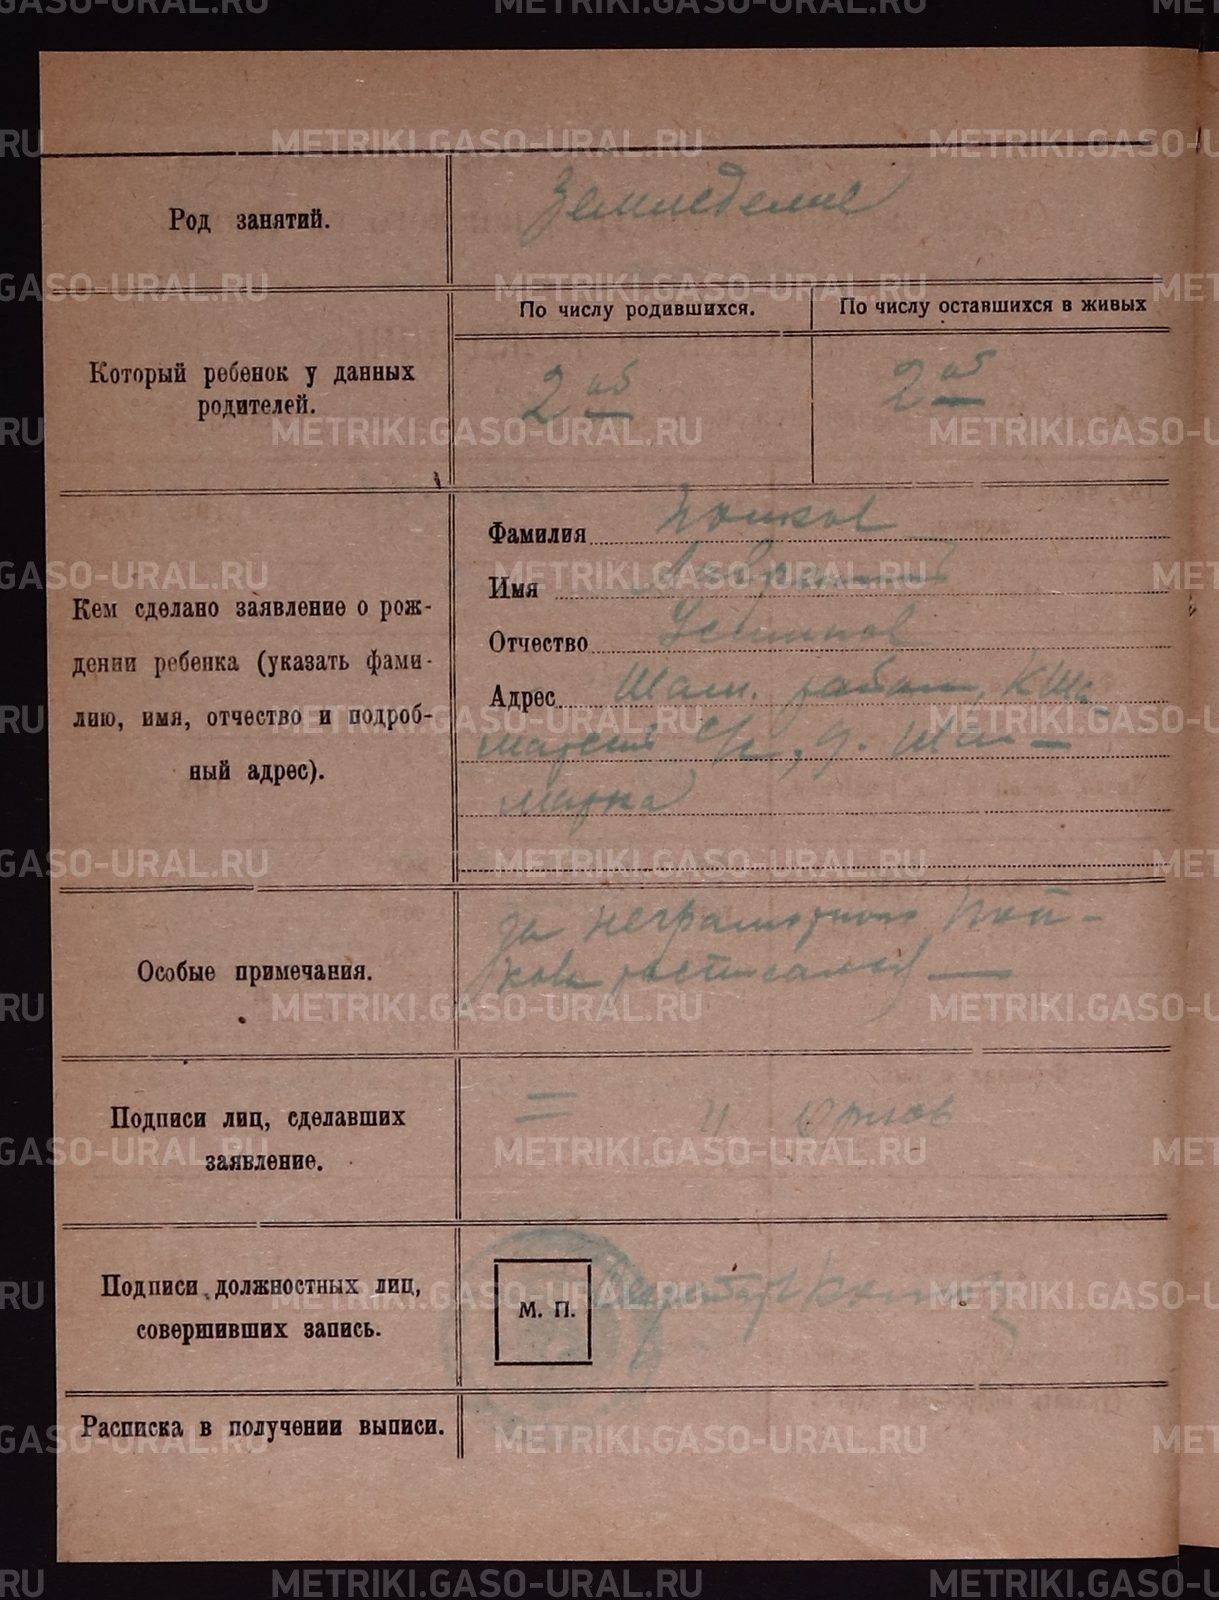 METRIKI.GASO-URAL.RU
Род занятий.
Земледелие
Который ребенок у данных
родителей.
По числу родившихся.
По числу оставшихся в живых
2 об
2 об
Кем сделано заявление о рож-
дении ребенка (указать фами-
лию, имя, отчество и подроб-
ный адрес).
Фамилия
Имя
Отчество
Адрес Шам. район, К Ша-
марский с/с, д. Ша-
марка
Особые примечания.
За неграмотного
расписался
Подписи лиц, сделавших
заявление.
= И Орлов
Подписи должностных лиц,
совершивших запись.
М. П.
Секретарь
Расписка в получении выписи.